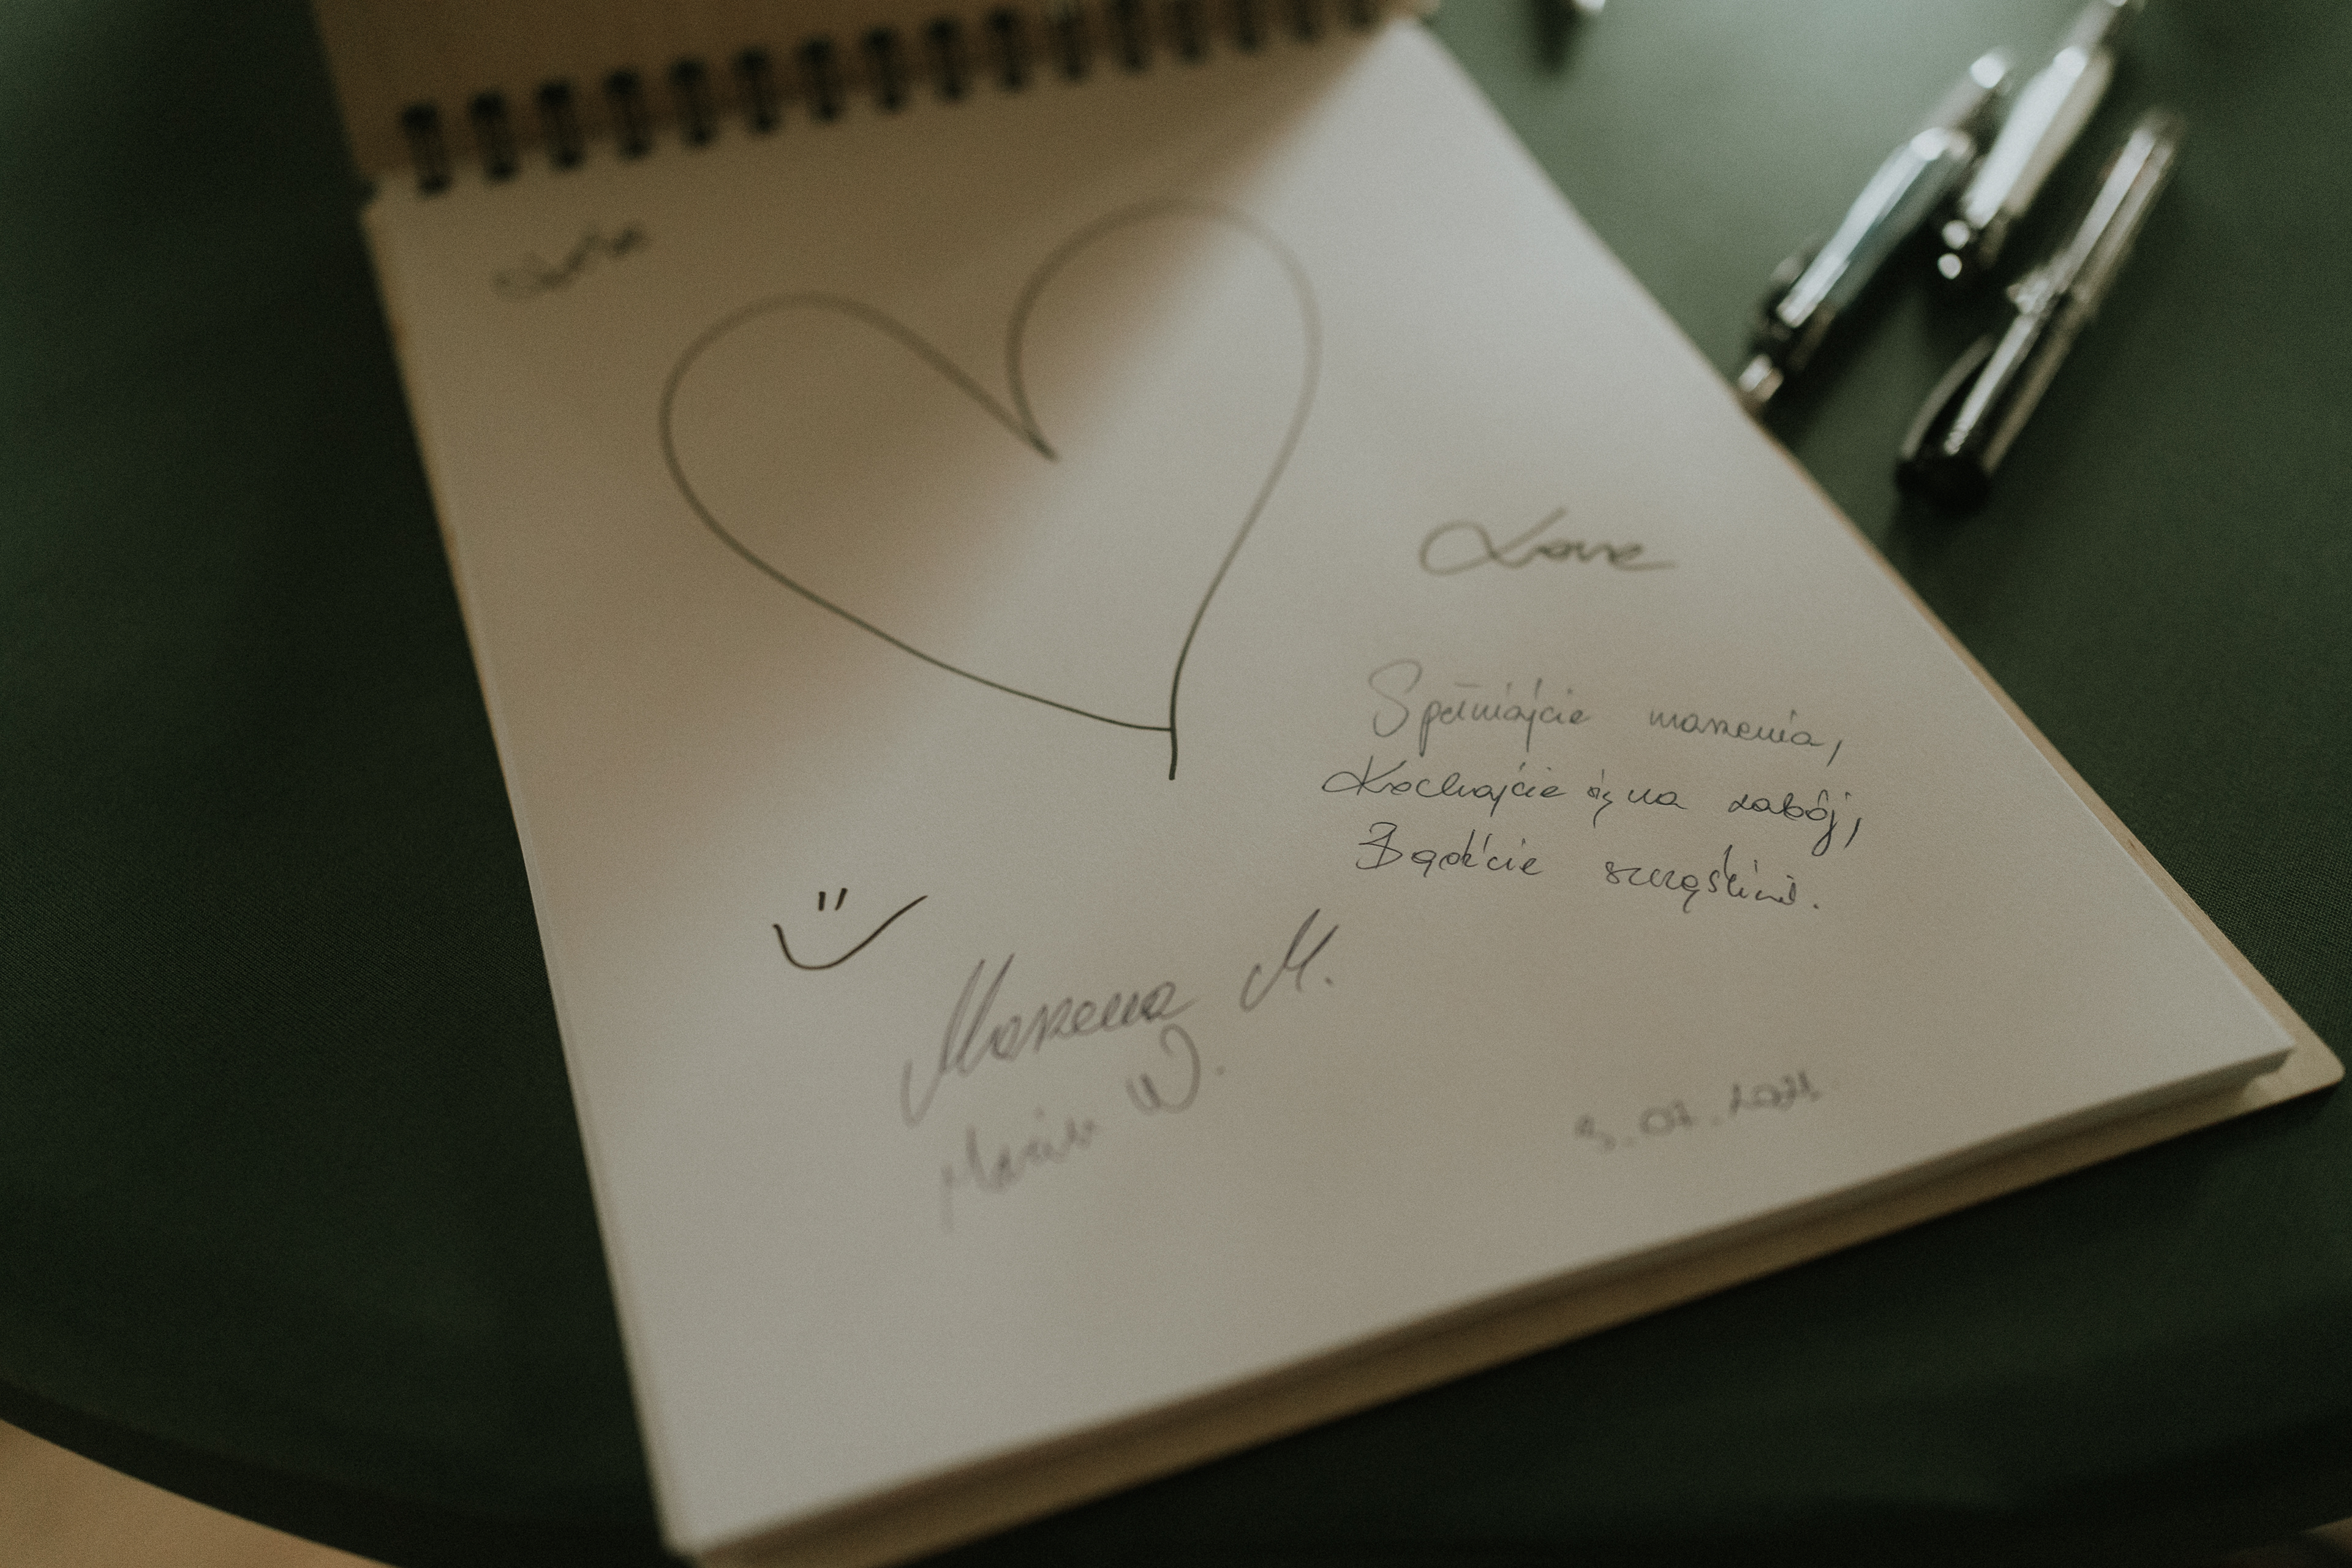 Love
Spełniajcie marzenia,
Kochajcie się na zabój,
Bądźcie szczęśliwi.
Marzena M.
Marcin W.